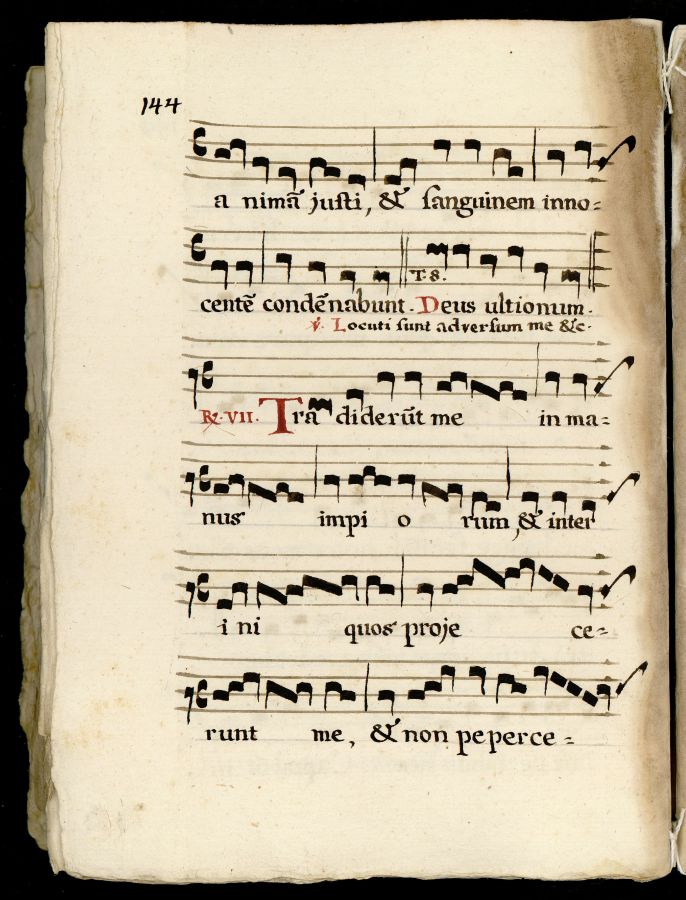 144
a nimã justi, & sanguinem inno=
T. 8.
centẽ condẽnabunt. Deus ultionum.
℣. Locuti sunt adversum me &c.
℟. VII. Tra diderũt me in ma=
nus impi o rum, & inter
i ni quos proje ce=
runt me, & non peperce=